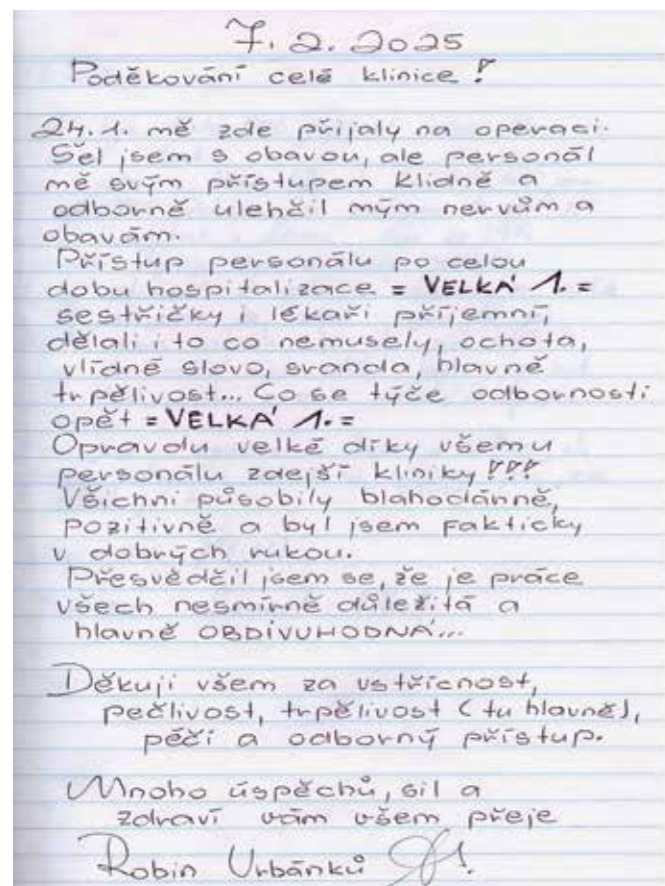 7. 2. 2025
Poděkování celé klinice!
24. 1. mě zde přijaly na operaci.
Šel jsem s obavou, ale personál
mě svým přístupem klidně a
odborně ulehčil mým nervům a
obavám.
Přístup personálu po celou
dobu hospitalizace = VELKÁ 1. =
sestřičky i lékaři příjemní,
dělali i to co nemusely, ochota,
vlídné slovo, sranda, hlavně
trpělivost... Co se týče odbornosti
opět = VELKÁ 1. =
Opravdu velké díky všemu
personálu zdejší kliniky!!!
Všichni působily blahodánně,
pozitivně a byl jsem fakticky
v dobrých rukou.
Přesvědčil jsem se, že je práce
všech nesmírně důležitá a
hlavně OBDIVUHODNÁ...
Děkuji všem za vstřícnost,
pečlivost, trpělivost (tu hlavně),
péči a odborný přístup.
Mnoho úspěchů, sil a
zdraví vám všem přeje
Robin Urbánků